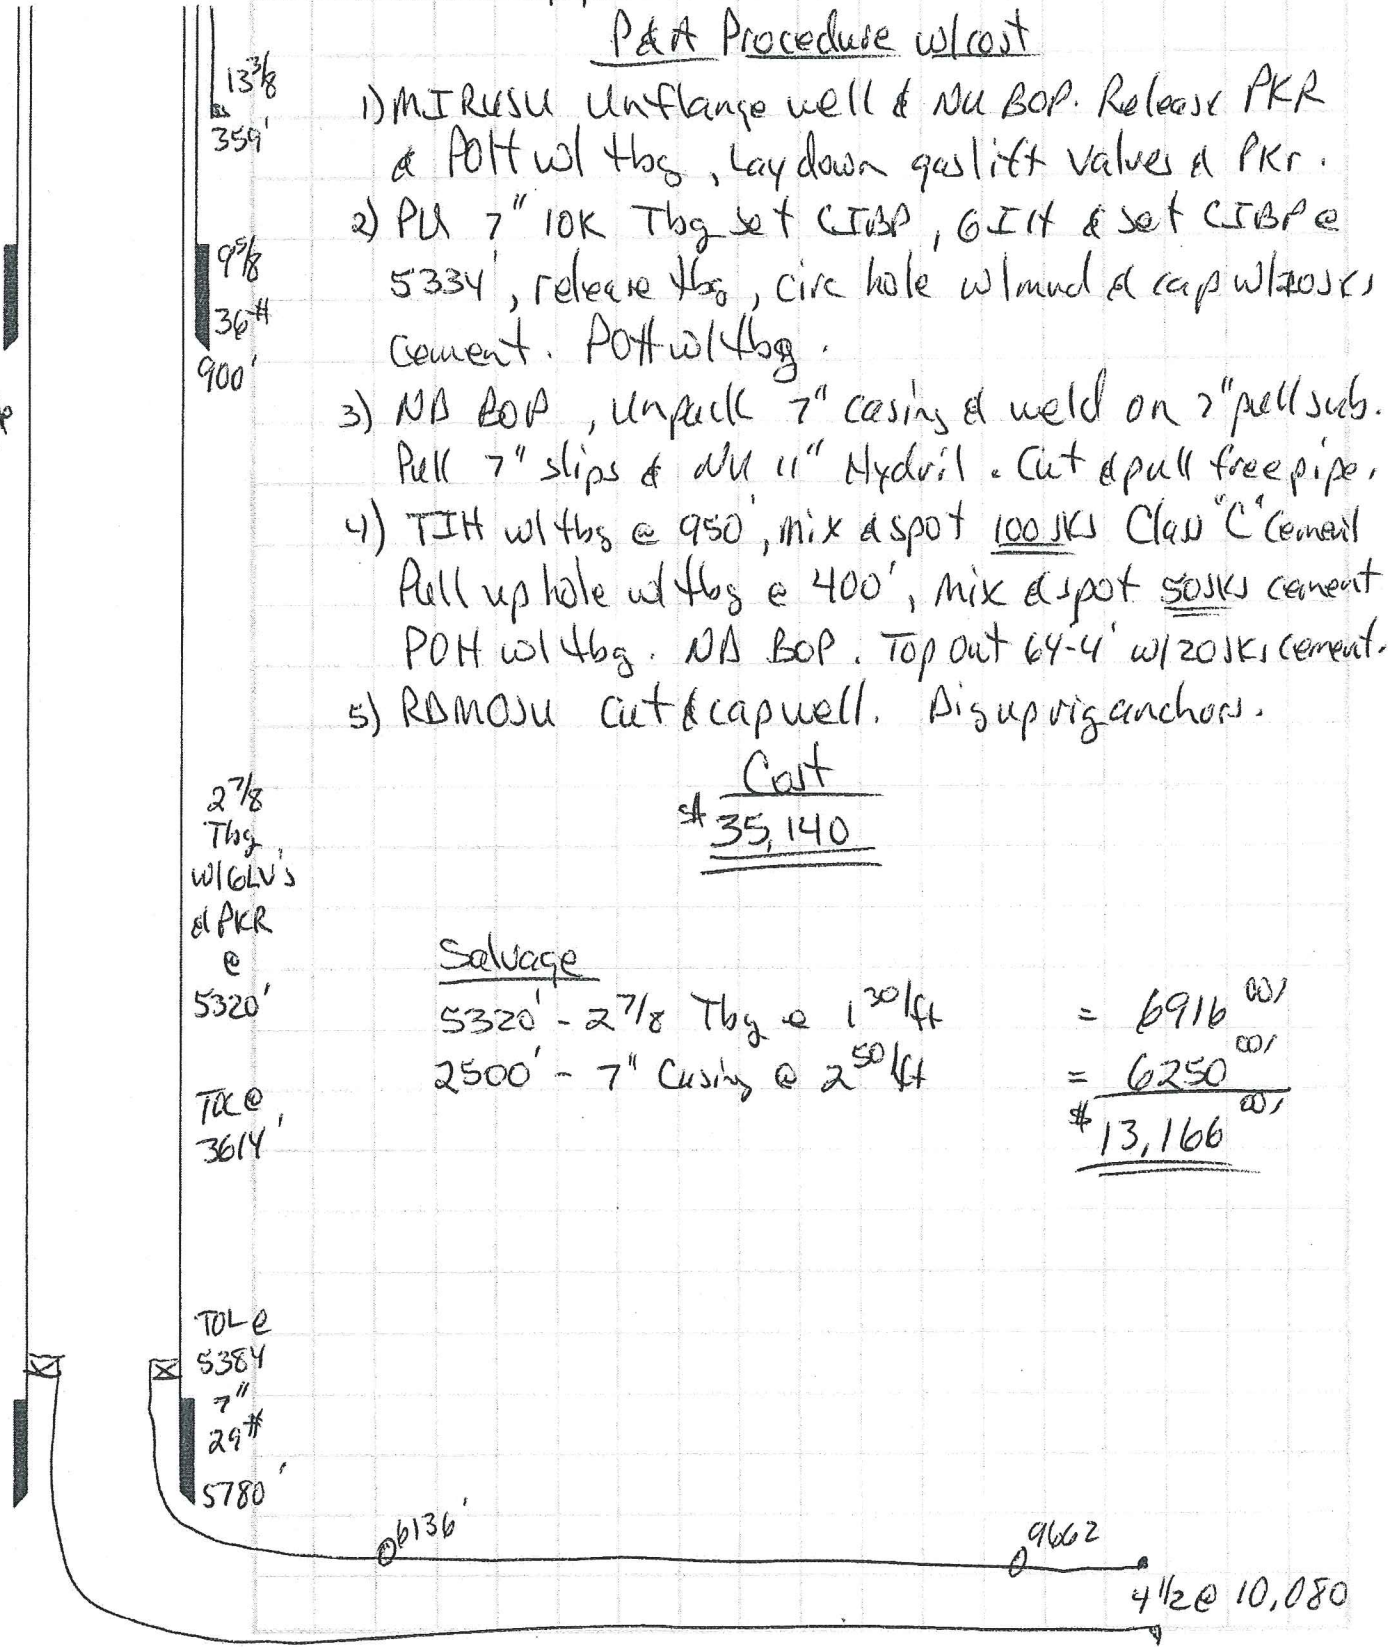 P&A Procedure w/cost
1) MIRUSU Unflange well & NU BOP. Release PKR
& POH w/ tbg, Lay down gaslift valves & PKr.
2) PU 7" 10K Tbg set CIBP, GIH & set CIBP @
5334', release tbg, circ hole w/mud & cap w/20sks
Cement. POH w/tbg.
3) ND BOP, Unpack 7" casing & weld on 7" pull sub.
Pull 7" slips & NU 11" Hydril. Cut & pull free pipe.
4) TIH w/ tbg @ 950', mix & spot 100 sks Class "C" Cement
Pull up hole w/ tbg @ 400', mix & spot 50sks cement
POH w/ tbg. ND BOP. Top Out 64-4' w/20 sks cement.
5) RDMOSU Cut & cap well. Dig up rig anchors.
Cost
$35,140
Salvage
5320' - 2 7/8 Tbg @ 1 30/ft = 6916 00/
2500' - 7" Casing @ 2 50/ft = 6250 00/
$13,166 00/
13 3/8
359'
9 5/8
36#
900'
2 7/8
Tbg
W/GLV's
& PKR
@
5320'
TOC@
3614'
TOL@
5384
7"
29#
5780'
6136'
9662
4 1/2 @ 10,080